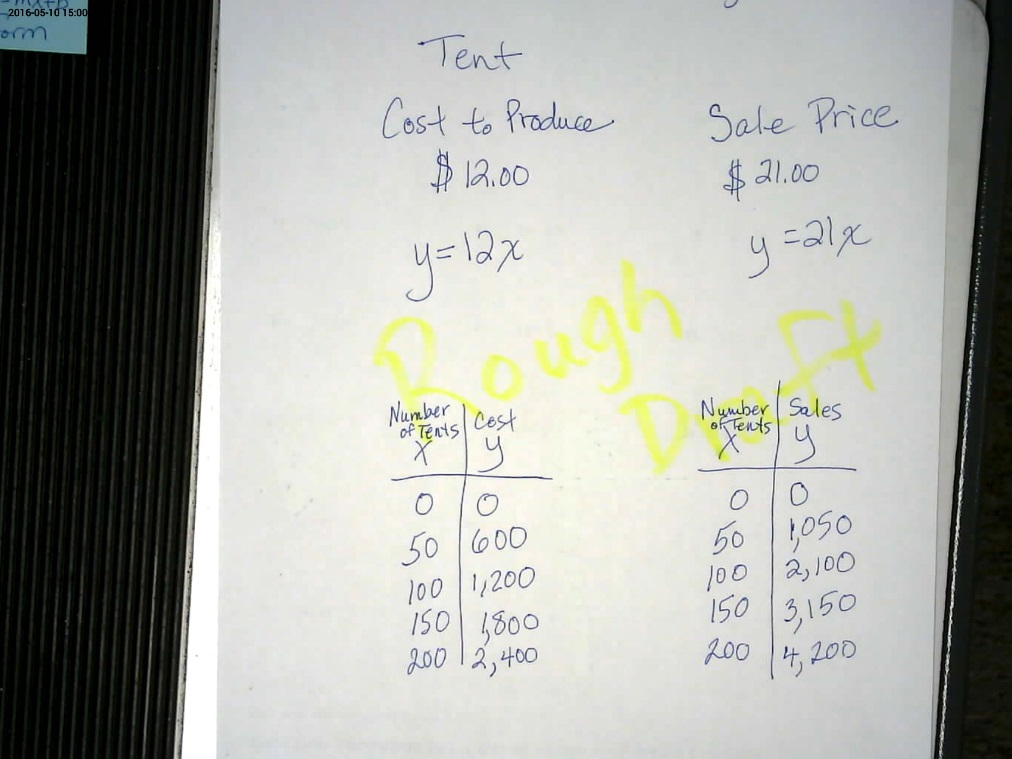 2016-05-10 15:00
orm
Tent
Cost to Produce
$12.00
y=12x
Sale Price
$21.00
y=21x
Rough
Draft
Number
of Tents
x
Cost
y
0 0
50 600
100 1,200
150 1,800
200 2,400
Number
of Tents
x
Sales
y
0 0
50 1,050
100 2,100
150 3,150
200 4,200